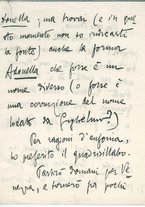 Amella; ma trovai (e in que
sto momento non so indicarti
la fonte) anche la forma
Adanella che forse è un
nome diverso (o forse è
una corruzione del nome
lodato da Guglielmo?)
Per ragioni d'eufonia,
ho preferito il quadrisillabo.
Partirò domani per Ve
nezia, e tornerò fra pochi